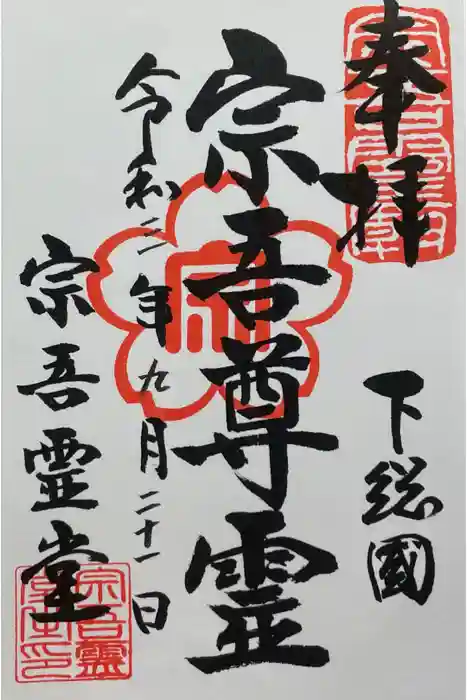 奉拝
下総國
宗吾尊霊
令和二年九月二十一日
宗吾霊堂